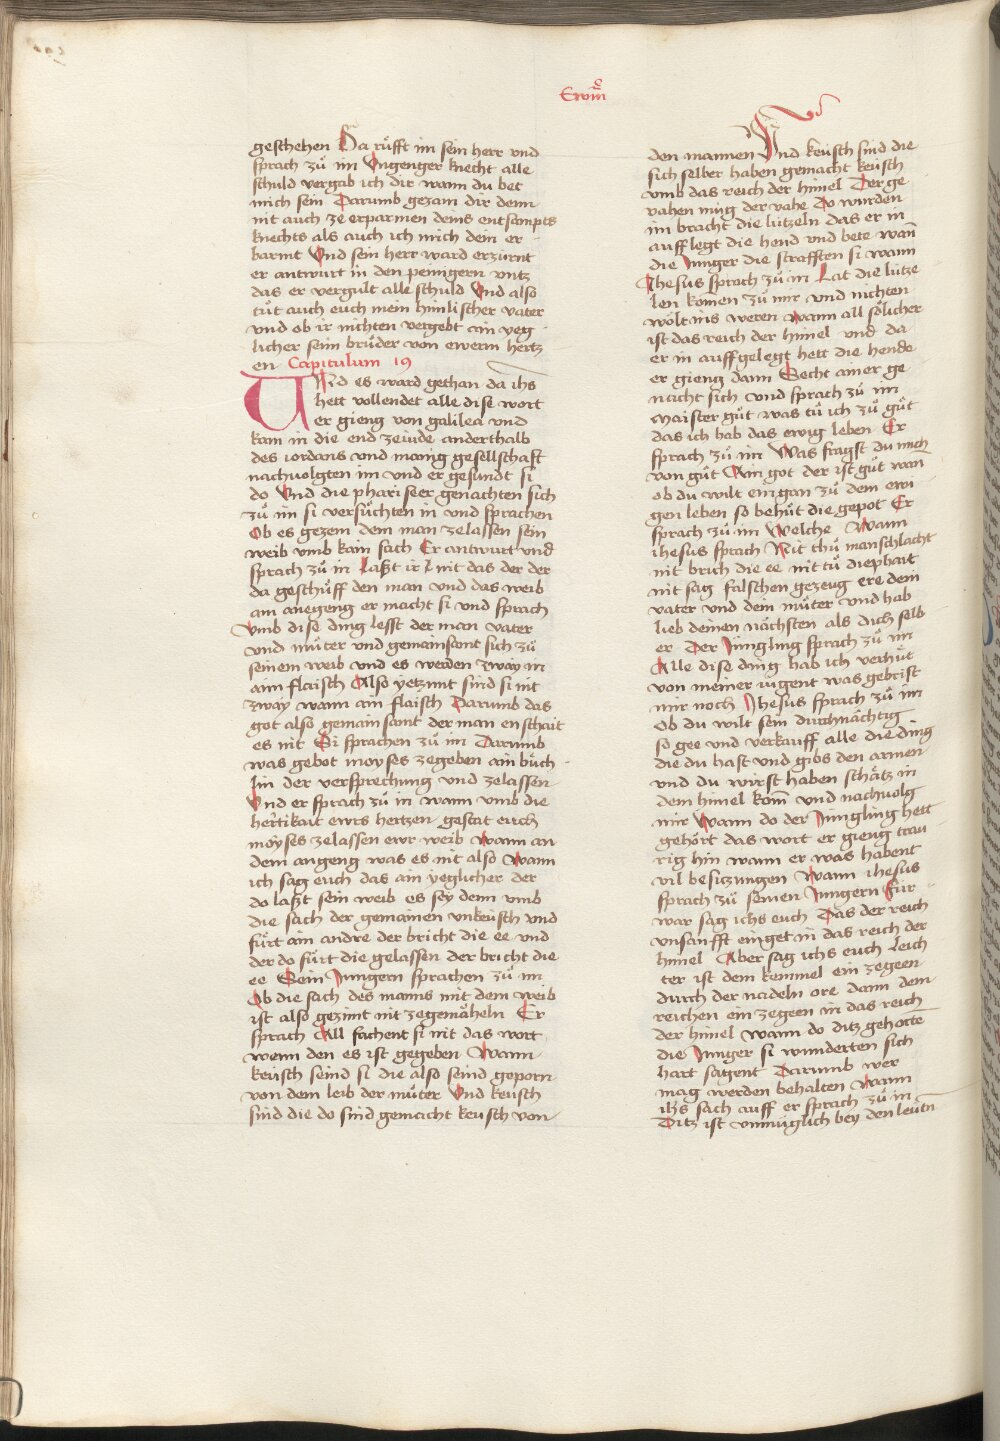 Ewm̄
geschehen Da rufft im sein herr vnd
sprach zů im Vngenger knecht alle
schuld vergab ich dir wann du bet
mich sein Darumb gezam dir denn
nit auch ze erparmen deins entsampts
knechts als auch ich mich dein er
barmt Vnd sein herr ward erzürnt
er antwurt in den peinigern vntz
das er vergult alle schuld Vnd also
tůt auch euch mein himlischer vater
vnd ob ir nichten vergebt ain yeg
licher seim brůder von ewerm hertz
en Capitulum 19
VNd es ward gethan da ihs
hett vollendet alle dise wort
er gieng von galilea vnd
kam in die end zeiude anderthalb
des iordans vnd manig gesellschaft
nachuolgten im vnd er gesundt si
do Vnd die phariseer genachten sich
zů im si versůchten in vnd sprachen
Ob es gezem dem man zelassen sein
weib vmb kain sach Er antwurt vnd
sprach zů in Laßt ir nit das der der
da geschůff den man vnd das weib
am anegeng er macht si vnd sprach
Vmb dise ding lesst der man vater
vnd můter vnd gemainsamt sich zů
seinem weib vnd es werden zway in
aim flaisch Also yetzunt sind si nit
zway wann ain flaisch Darumb das
got also gemainsamt der man enschait
es nit Si sprachen zů im Darumb
was gebot moyses zegeben ain bůch
lin der versprechung vnd zelassen
Vnd er sprach zů in wann vmb die
hertikait ewrs hertzen gestat euch
moyses zelassen ewr weib Wann an
dem angeng was es nit also Wann
ich sag euch das ain yeglicher der
do laßt sein weib es sey denn vmb
die sach der gemainen vnkeusch vnd
fürt ain andre der bricht die ee vnd
der do fürt die gelassen der bricht die
ee Sein Jungern sprachen zů im
Ob die sach des manns mit dem weib
ist also gezimt nit zegemäheln Er
sprach All fachent si nit das wort
wenn den es ist gegeben Wann
keusch seind si die also seind geporn
von dem leib der můter Vnd keusch
sind die do sind gemacht keusch von
den mannen Vnd keusch sind die
sich selber haben gemacht keusch
vmb das reich der himel Der ge
vahen müg der vahe Do wurden
im bracht die lützeln das er in
auff legt die hend vnd bete wañ
die Junger die strafften si wann
Jhesus sprach zů in Lat die lütze
len komen zů mir vnd nichten
wölt ins weren Wann all sölicher
ist das reich der himel vnd da
er in auffgelegt hett die hende
er gieng dann Secht ainer ge
nacht sich vnd sprach zů im
Maister gůt was tů ich zů gůt
das ich hab das ewig leben Er
sprach zů im Was fragst du mich
von gůt Ain got der ist gůt wañ
ob du wilt eingan zů dem ewi
gen leben so behüt die gepot Er
sprach zů im Welche Wann
ihesus sprach Nit thů manschlacht
nit brich die ee nit tů diephait
nit sag falschen gezeug ere dein
vater vnd dein můter vnd hab
lieb deinen nächsten als dich selb
er Der Jüngling sprach zů im
Alle dise ding hab ich verhüt
von meiner iugent was gebrist
mir noch Jhesus sprach zů im
Ob du wilt sein durchnächtig
so gee vnd verkauff alle die ding
die du hast vnd gibs den armen
vnd du wirst haben schätz in
dem himel kom̄ vnd nachuolg
mir Wann do der Jüngling hett
gehört das wort er gieng trau
rig hin wann er was habent
vil besitzungen Wann ihesus
sprach zů seinen Jungern Für
war sag ichs euch Das der reich
vnsanfft einget in das reich der
himel Aber sag ichs euch Leich
ter ist dem kemmel ein zegeen
durch der nadeln ore dann dem
reichen ein zegeen in das reich
der himel wann do ditz gehörtē
die Junger si wunderten sich
hart sagent Darumb wer
mag werden behalten Wann
ihs sach auff er sprach zů in
Ditz ist vnmüglich bey den leutñ